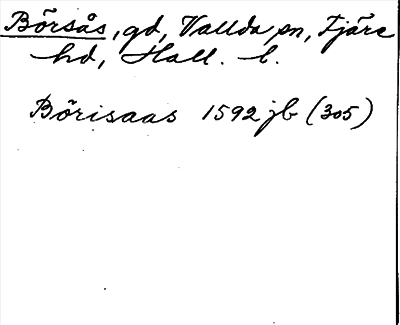 Börsås, gd, Vallda sn, Fjäre
hd, Hall. l.
Börisaas 1592 jb (305)